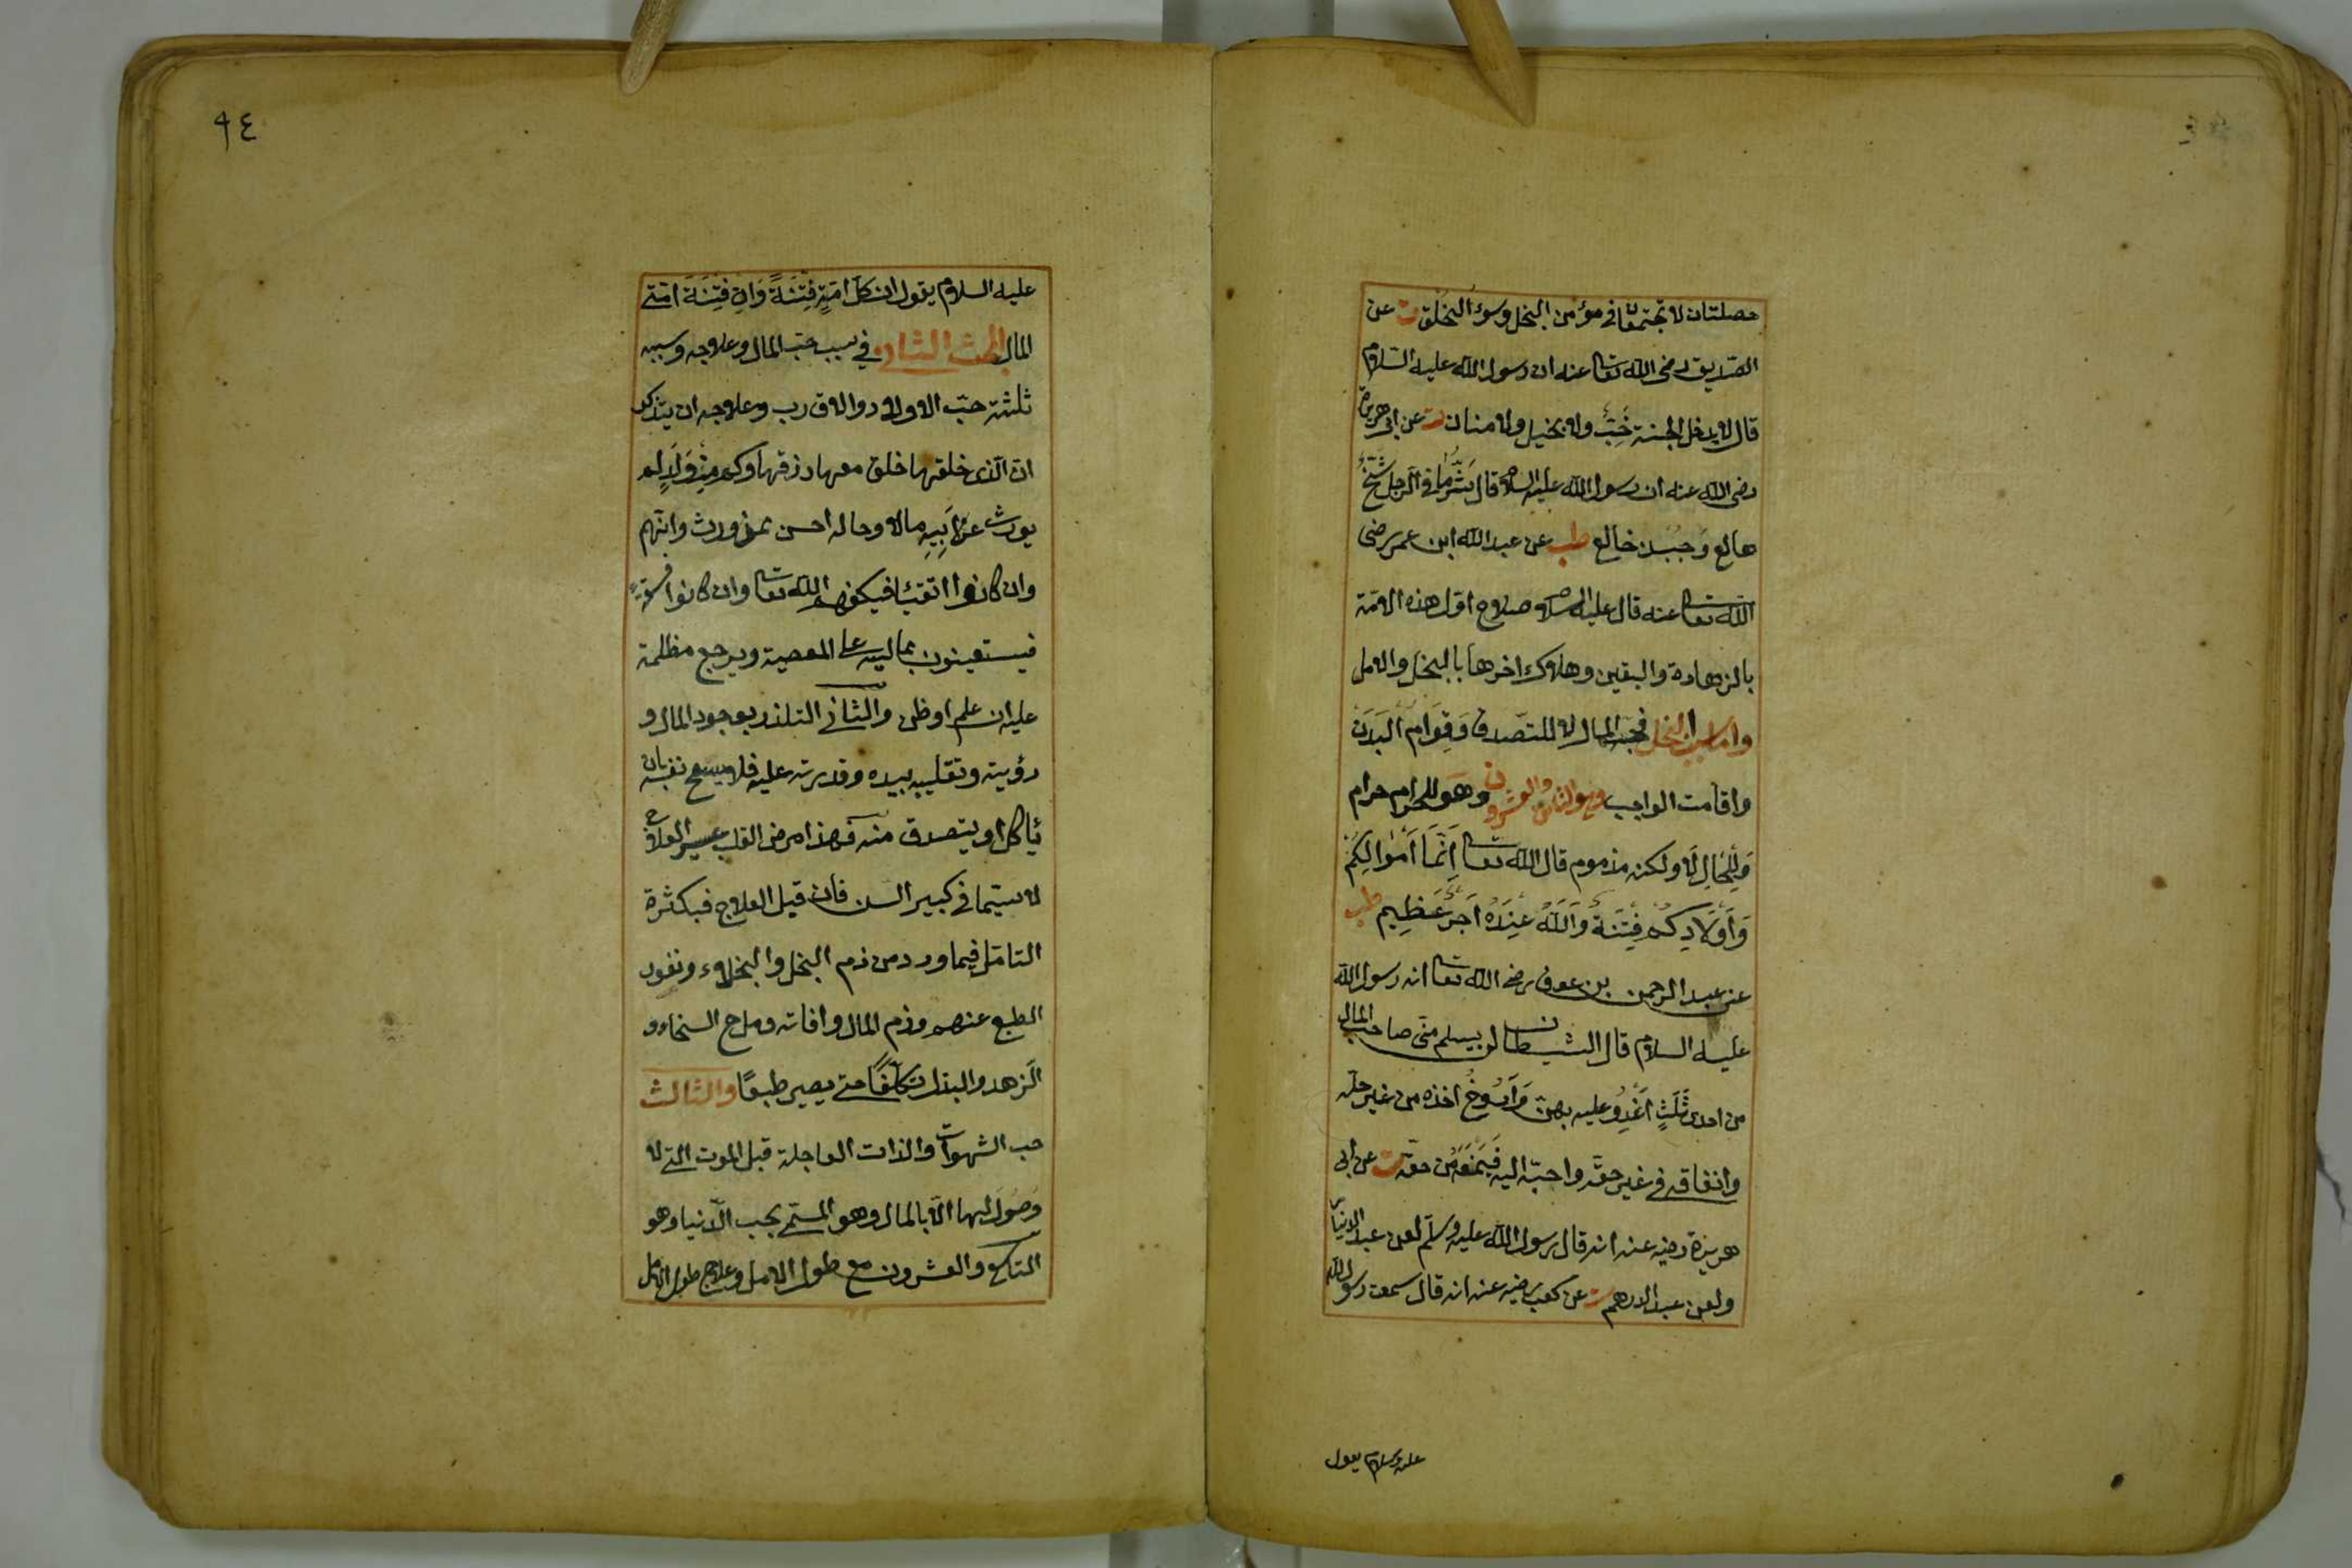 خصلتان لا تجتمعان في مؤمن البخل وسوء الخلق ت عن
الصديق رضى الله تعا عنه ان رسول الله عليه السلام
قال لا يدخل الجنة خَبّ ولا بخيل ولا منان د عن ابى هريرة
رضى الله عنه ان رسول الله عليه السلام قال شَرّ ما في الرجل شُحّ
هالع وَجبن خالع طب عن عبد الله ابن عمر رضى
الله تعا عنه قال عليه السلام صلاح اول هذه الامة
بالزهادة واليقين وهلاك اخرها بالبخل والامل
واما سبب البخل فحب المال لا للتصدق وَقِوَام البَدَن
واقامت الواجب وهو الثامن والعشرون وهو للحرام حرام
وَلِلحَلال لا ولكنه مذموم قال الله تعا اَنَّمَا اَمْوَالِكُمْ
وَاَوْلَادِكُم فِتْنَةٌ وَاللّٰهُ عِنْدَهُ اَجْرٌ عَظِيم طب
عن عبد الرحمن بن عوف رضى الله تعا انه رسول الله
عليه السلام قال الشيطان لن يسلم منى صاحب المال
من احدى ثَلَثٍ اَغْدُو عليه بهن وَاَرُوحُ اخذه من غير حله
وانفاقه في غير حقه واحببه اليه فَيَمْنَعُهُ من حقه ت عن ابى
هريرة رضيه عنه انه قال رسول الله عليه وسلم لعن عبد الدنيار
ولعن عبد الدرهم ت عن كعب رضيه عنه انه قال سمعت رسول الله
عليه السلام يقول
٩٤
عليه السلام يقول ان لكل امةٍ فِتْنَةً وَاِن فِتْنَةَ امّتى
المال المبحث الثانى في سبب حب المال وعلاجه وسببه
ثلثة حبّ الاولاد والاقارب وعلاجه ان يتذكر
ان الّذى خلقها خلق معها رزقها وكم مِنْ وَلَدٍ لم
يورث عن اَبِيهِ مالا وحاله احسن ممن ورث وانهم
وان كانوا اتقياء فيكفيهم الله تعا وان كانوا فسقة
فيستعينون بماليه على المعصية ويرجع مظلمة
عليه ان علم او ظن والثانى التلذذ بوجود المال و
رؤيته وتقليبه بيده وقدرته عليه فلا يسمح نفسه بان
يأكل او يتصدق منه فهذا مرض القلب عسير العلاج
لا سيما في كبير السن فان قبل العلاج فبكثرة
التامّل فيما ورد من ذم البخل والبخلاء ونفور
الطبع عنهم وذم المال وافاته ومدح السخاء و
الزهد والبذل تكلّفًا حتى يصير طبعًا والثالث
حب الشهوات والذات العاجلة قبل الموت التى لا
وصُول اليها الّا بالمال وهو المسمّى بحب الدّنيا وهو
التاسع والعشرون مع طول الامل وعلاج طول الامل